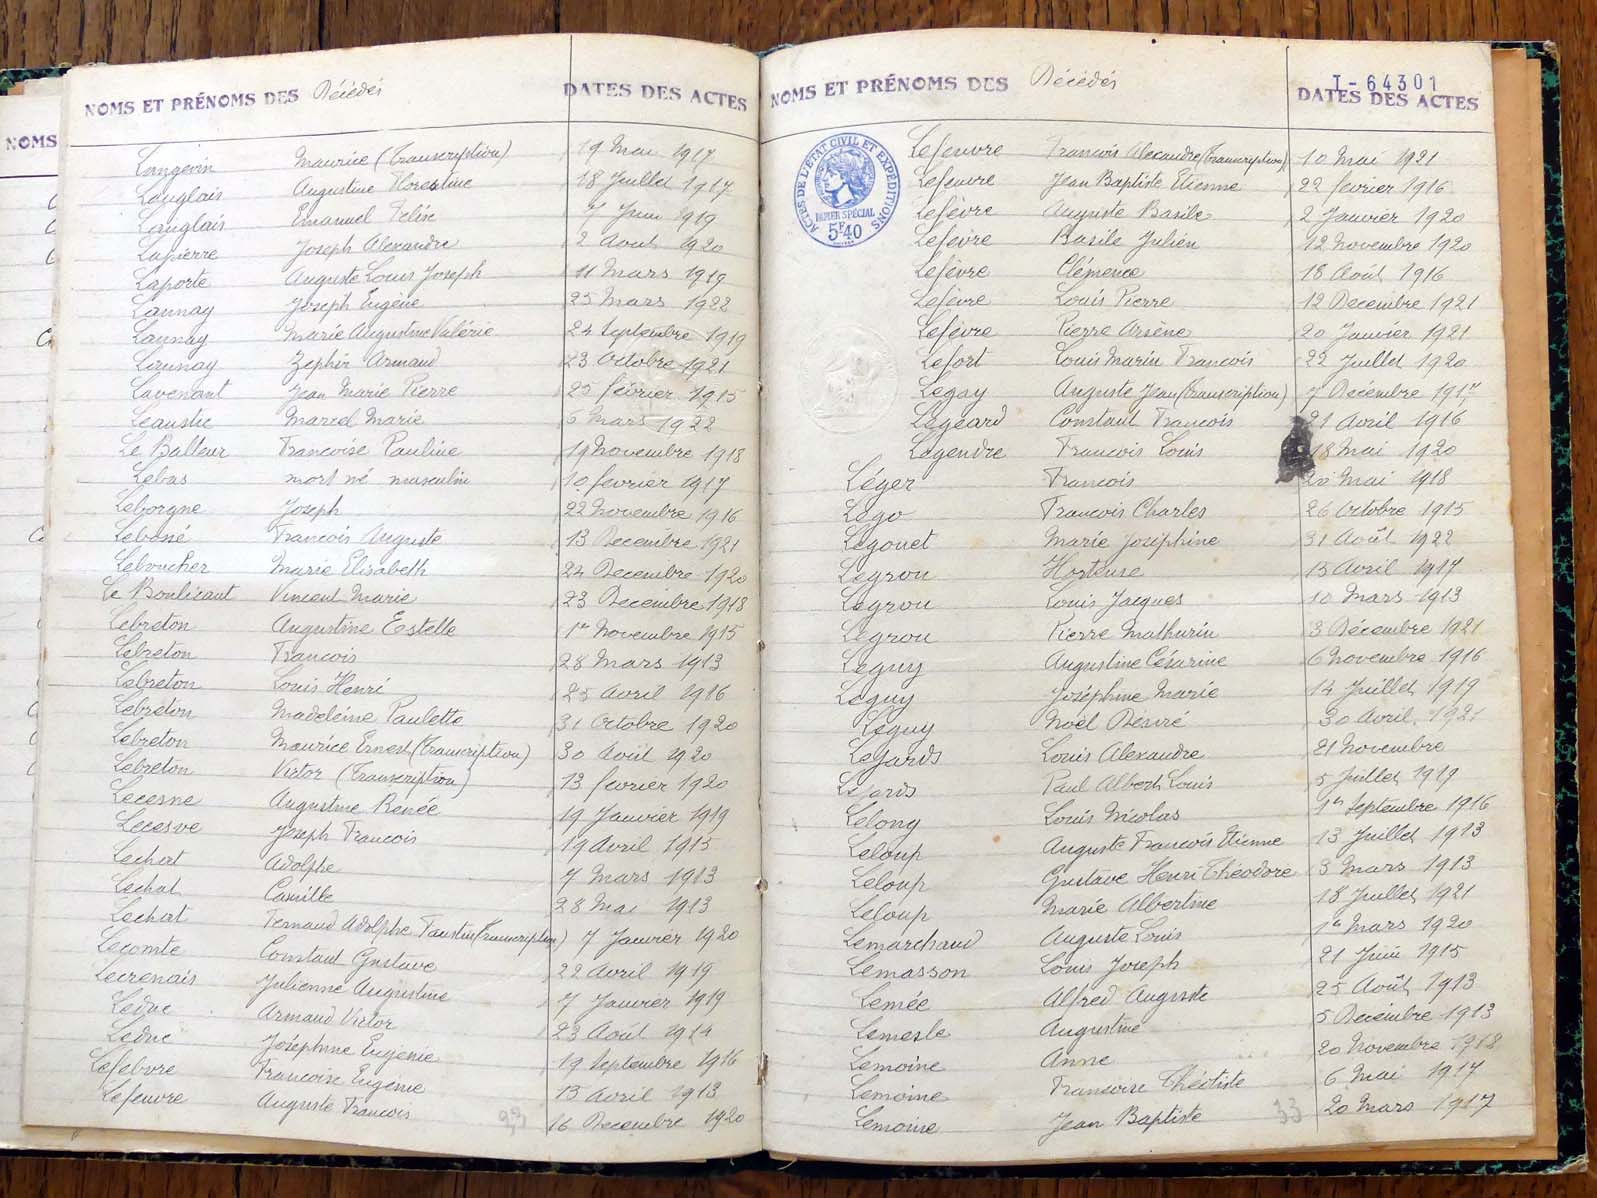 NOMS
NOMS ET PRÉNOMS DES Décédés DATES DES ACTES
Langevin Maurice (Transcription) 19 Mai 1917
Langlois Augustine Florentine 18 Juillet 1917
Langlais Emanuel Felix 7 Juin 1919
Lapierre Joseph Alexandre 2 Aout 1920
Laporte Auguste Louis Joseph 11 Mars 1919
Launay Joseph Eugène 25 Mars 1922
Launay Marie Augustine Valérie 24 Septembre 1919
Launay Zéphir Armand 23 Octobre 1921
Lavenant Jean Marie Pierre 25 février 1915
Leaustic Marcel Marie 5 Mars 1922
Le Balleur Francoise Pauline 19 Novembre 1918
Lebas mort né masculin 10 février 1917
Leborgne Joseph 22 Novembre 1916
Lebossé Francois Auguste 13 Decembre 1921
Leboucher Marie Elisabeth 24 Decembre 1920
Le Boulicaut Vincent Marie 23 Decembre 1918
Lebreton Augustine Estelle 1er Novembre 1915
Lebreton Francois 28 Mars 1913
Lebreton Louis Henri 25 Avril 1916
Lebreton Madeleine Paulette 31 Octobre 1920
Lebreton Maurice Ernest (Transcription) 30 Août 1920
Lebreton Victor (Transcription) 13 février 1920
Lecesne Augustine Renée 19 Janvier 1919
Lecesve Joseph Francois 19 Avril 1915
Lechat Adolphe 7 Mars 1913
Lechat Camille 28 Mai 1913
Lechat Fernand Adolphe Faustin (Transcription) 7 Janvier 1920
Lecomte Constant Gustave 22 Avril 1919
Lecrenais Julienne Augustine 7 Janvier 1919
Leduc Armand Victor 23 Août 1914
Leduc Josephine Eugénie 19 Septembre 1916
Lefebvre Francoise Eugénie 13 Avril 1913
Lefeuvre Auguste Francois 16 Decembre 1920
NOMS ET PRÉNOMS DES Décédés DATES DES ACTES
I-64301
ACTES DE L'ÉTAT CIVIL ET EXPÉDITIONS
PAPIER SPÉCIAL
5F40
Lefeuvre Francois Alexandre (Transcription) 10 Mai 1921
Lefeuvre Jean Baptiste Etienne 22 février 1916
Lefèvre Auguste Basile 2 Janvier 1920
Lefèvre Basile Julien 12 Novembre 1920
Lefèvre Clémence 18 Août 1916
Lefèvre Louis Pierre 12 Decembre 1921
Lefèvre Pierre Arsène 20 Janvier 1921
Lefort Louis Marin Francois 22 Juillet 1920
Legay Auguste Jean (Transcription) 7 Décembre 1917
Legeard Constant Francois 21 Avril 1916
Legendre Francois Louis 18 Mai 1920
Léger Francois 20 Mai 1918
Légo Francois Charles 26 Octobre 1915
Légouet Marie Joséphine 31 Août 1922
Legrou Hortense 15 Avril 1917
Legrou Louis Jacques 10 Mars 1913
Legrou Pierre Mathurin 3 Décembre 1921
Leguy Augustine Césarine 6 Novembre 1916
Leguy Joséphine Marie 14 Juillet 1919
Leguy Noël Désiré 30 Avril 1921
Lejards Louis Alexandre 21 Novembre
Lejards Paul Albert Louis 5 Juillet 1919
Lelong Louis Nicolas 1er Septembre 1916
Leloup Auguste Francois Etienne 13 Juillet 1913
Leloup Gustave Henri Théodore 3 Mars 1913
Leloup Marie Albertine 18 Juillet 1921
Lemarchand Auguste Louis 1er Mars 1920
Lemasson Louis Joseph 21 Juin 1915
Lemée Alfred Auguste 25 Août 1913
Lemesle Augustine 5 Décembre 1913
Lemoine Anne 20 Novembre 1918
Lemoine Francoise Théotiste 6 Mai 1917
Lemoine Jean Baptiste 20 Mars 1917
33